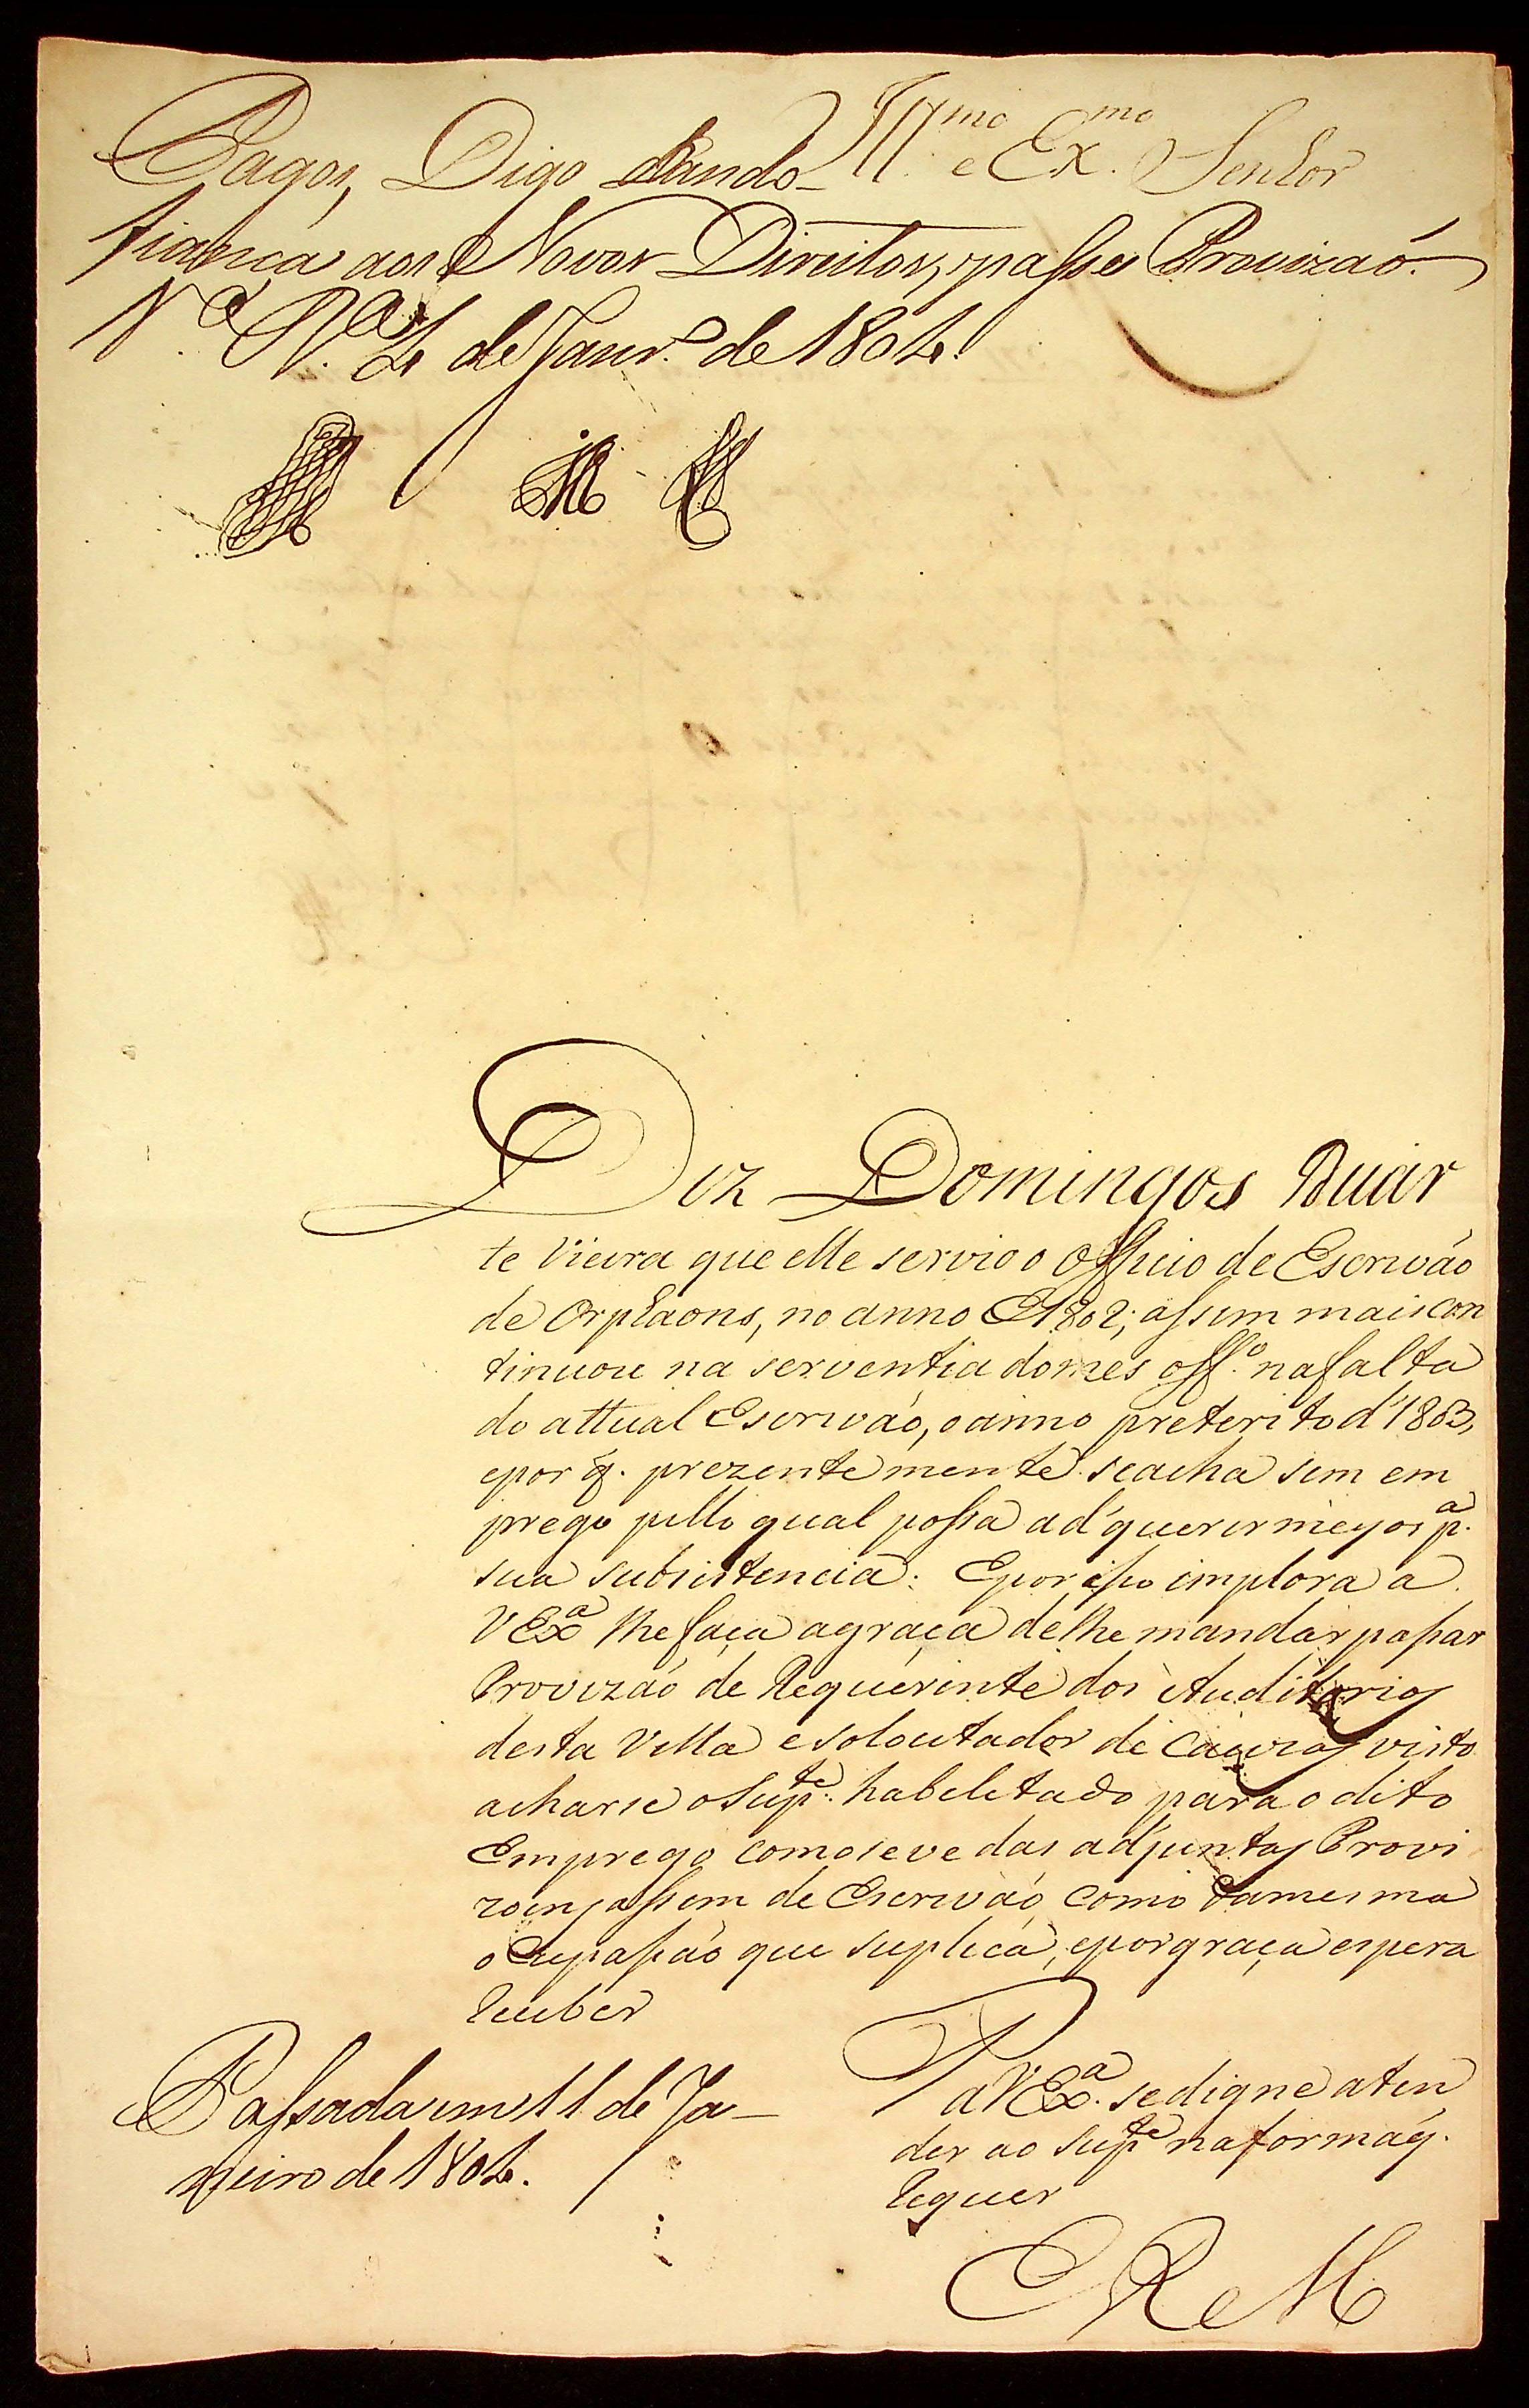 Ill.mo e Ex.mo Senhor
Pagos, Digo dando
fiança aos Novos Direitos, passe Provizaõ.
N.a V.a 4 de Janr.o de 1804.
Diz Domingos Duar
te Vieira que elle servio o Officio de Escrivaõ
de Orphaons, no anno d'1802; assim mais con
tinuou na serventia do mes off.o na falta
do attual Escrivaõ, o anno preterito d'1803,
e por q. prezentemente se acha sem em
prego pello qual possa ad'querir meyos p.a
sua subsistencia: E por isso implora a
V Ex.a lhe faça a graça de lhe mandar passar
Provizaõ de Requerente dos Auditorios
desta Villa e soloutador de Cauzas visto
acharse o Sup.te habeletado para o dito
Emprego como se ve das adjuntas Provi
zoens assim de Escrivaõ como da mesma
ocupassaõ que suplica, e por graça espera
Receber
P a V Ex.a se digne aten
der ao Sup.te na forma q.
Requer
E R e M
Passada em 11 de Ja-
neiro de 1804.